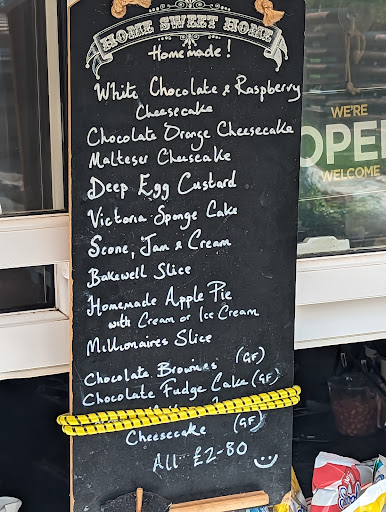 HOME SWEET HOME
Homemade!
White Chocolate & Raspberry
Cheesecake
Chocolate Orange Cheesecake
Malteser Cheesecake
Deep Egg Custard
Victoria Sponge Cake
Scone, Jam & Cream
Bakewell Slice
Homemade Apple Pie
with Cream or Ice Cream
Millionaires Slice
Chocolate Brownies (GF)
Chocolate Fudge Cake (GF)
Cheesecake (GF)
All £2-80
WE'RE
OPEN
WELCOME